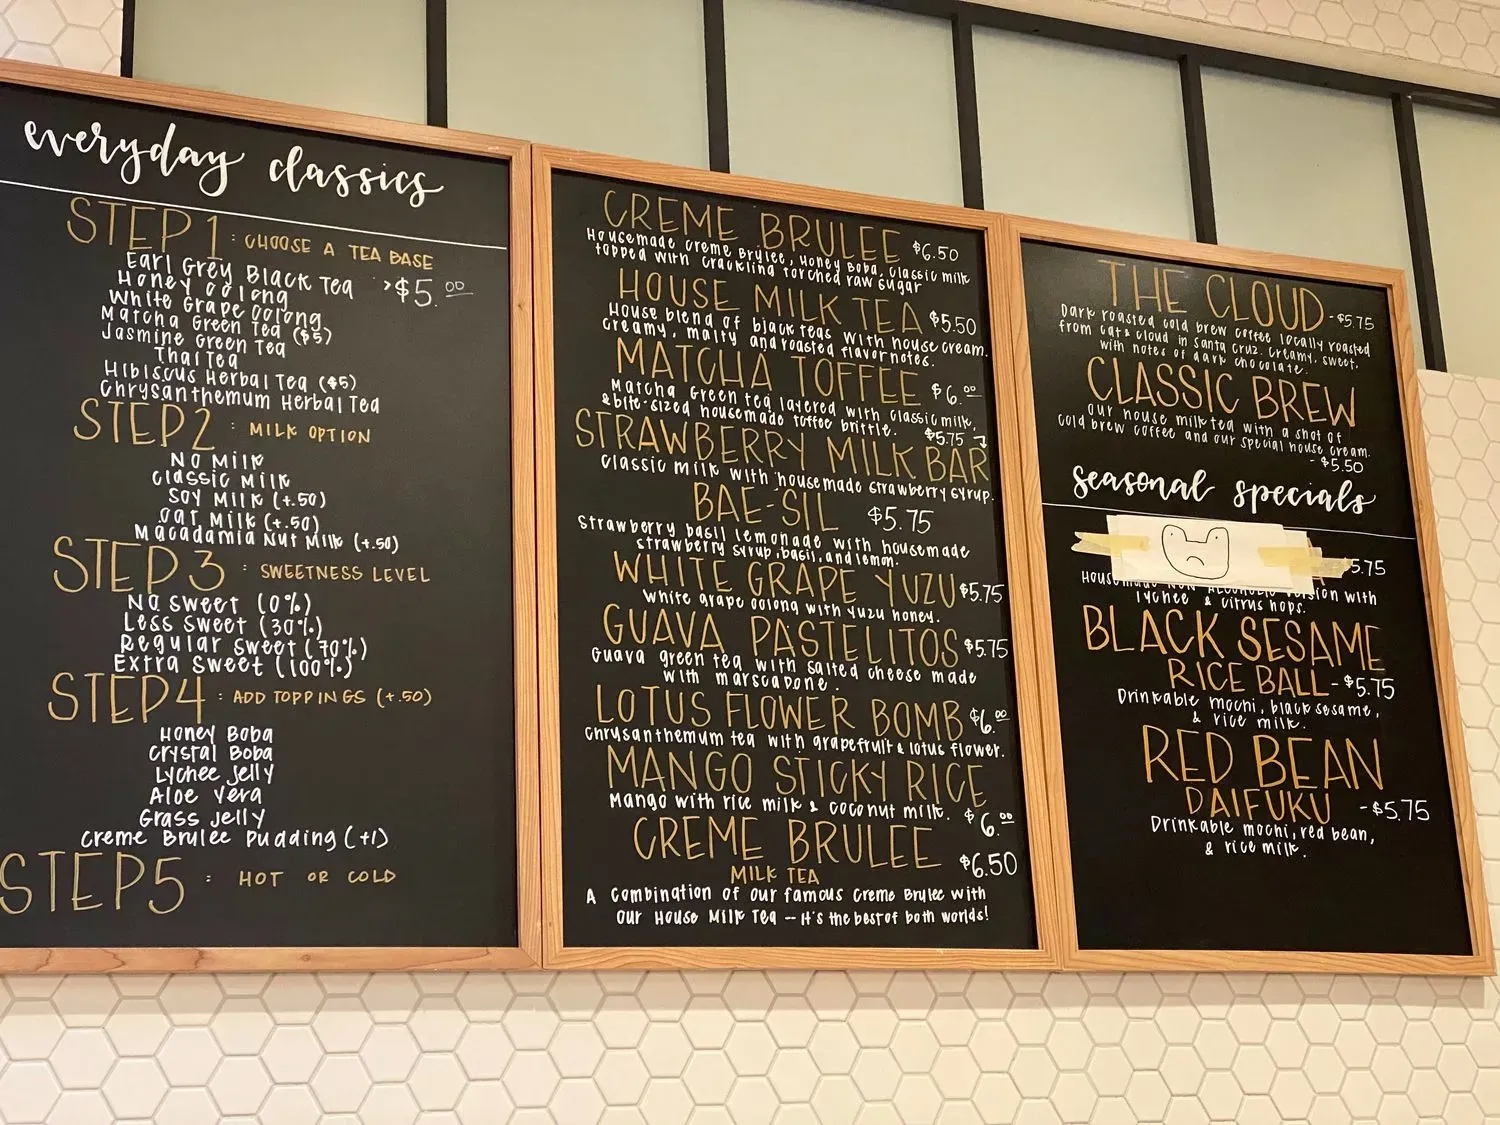 everyday classics
STEP 1 : CHOOSE A TEA BASE
Earl Grey Black Tea >$5.00
Honey Oolong
White Grape Oolong
Matcha Green Tea ($5)
Jasmine Green Tea
Thai Tea
Hibiscus Herbal Tea ($5)
Chrysanthemum Herbal Tea
STEP 2 : MILK OPTION
No Milk
Classic Milk
Soy Milk (+.50)
Oat Milk (+.50)
Macadamia Nut Milk (+.50)
STEP 3 : SWEETNESS LEVEL
No Sweet (0%)
Less Sweet (30%)
Regular Sweet (70%)
Extra Sweet (100%)
STEP 4 : ADD TOPPINGS (+.50)
Honey Boba
Crystal Boba
Lychee Jelly
Aloe Vera
Grass Jelly
Creme Brulee Pudding (+1)
STEP 5 : HOT OR COLD
CREME BRULEE $6.50
Housemade Creme Brulee, Honey Boba, Classic milk
topped with crackling torched raw sugar
HOUSE MILK TEA $5.50
House blend of black teas with house cream.
Creamy, malty and roasted flavor notes.
MATCHA TOFFEE $6.00
Matcha Green tea layered with classic milk,
& bite-sized housemade toffee brittle. $5.75
STRAWBERRY MILK BAR
Classic milk with housemade strawberry syrup.
BAE-SIL $5.75
Strawberry basil lemonade with housemade
strawberry syrup, basil, and lemon.
WHITE GRAPE YUZU $5.75
White grape oolong with yuzu honey.
GUAVA PASTELITOS $5.75
Guava green tea with salted cheese made
with marscapone.
LOTUS FLOWER BOMB $6.00
Chrysanthemum tea with grapefruit & lotus flower.
MANGO STICKY RICE
Mango with rice milk & coconut milk. $6.00
CREME BRULEE $6.50
MILK TEA
A combination of our famous Creme Brulee with
our House Milk Tea -- it's the best of both worlds!
THE CLOUD - $5.75
Dark roasted cold brew coffee locally roasted
from cat & cloud in santa cruz. Creamy, sweet,
with notes of dark chocolate.
CLASSIC BREW
our house milk tea with a shot of
cold brew coffee and our special house cream.
- $5.50
seasonal specials
5.75
with
lychee & citrus hops.
BLACK SESAME
RICE BALL - $5.75
Drinkable mochi, black sesame,
& rice milk.
RED BEAN
DAIFUKU - $5.75
Drinkable mochi, red bean,
& rice milk.